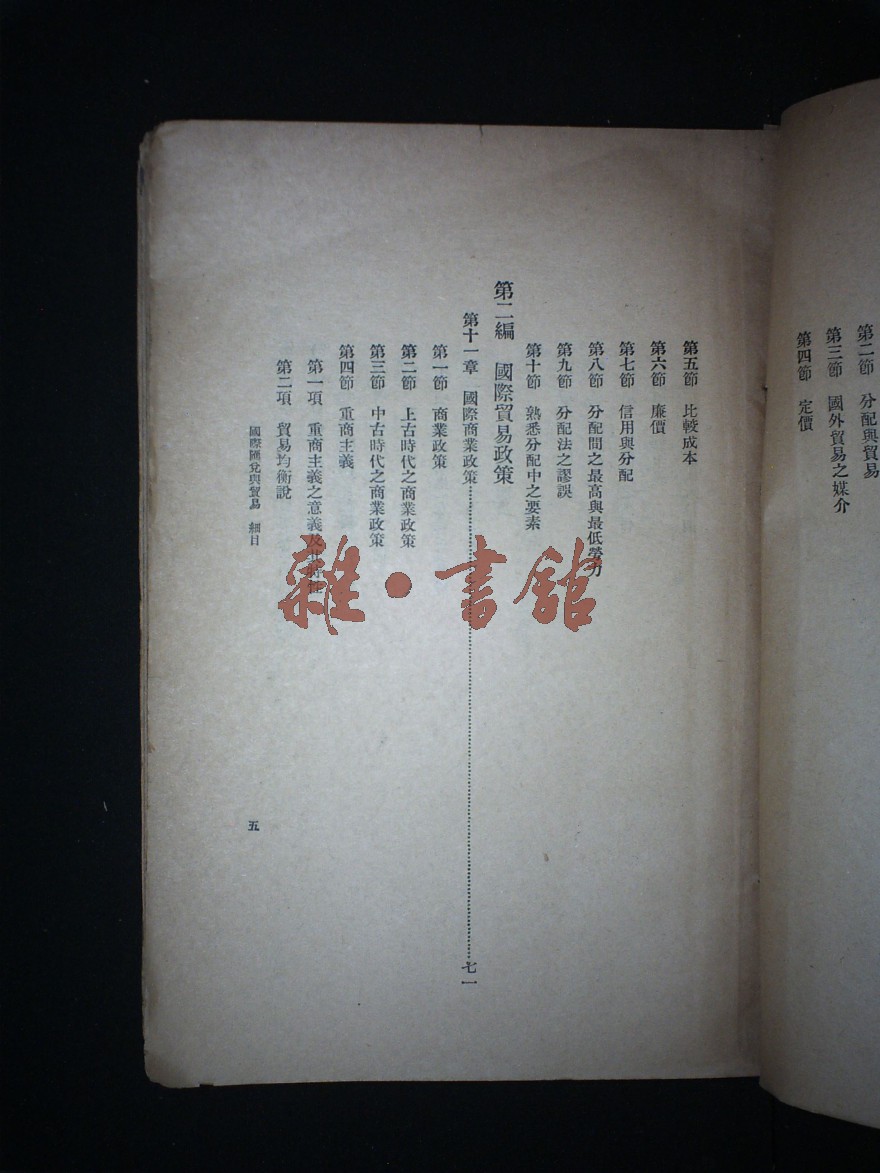 第二節　分配與貿易
第三節　國外貿易之媒介
第四節　定價
第五節　比較成本
第六節　廉價
第七節　信用與分配
第八節　分配間之最高與最低勞力
第九節　分配法之謬誤
第十節　熟悉分配中之要素
第二編　國際貿易政策
第十一章　國際商業政策⋯⋯⋯⋯⋯⋯七一
第一節　商業政策
第二節　上古時代之商業政策
第三節　中古時代之商業政策
第四節　重商主義
第一項　重商主義之意義及其特性
第二項　貿易均衡說
國際匯兌與貿易　細目
五
雜·書館